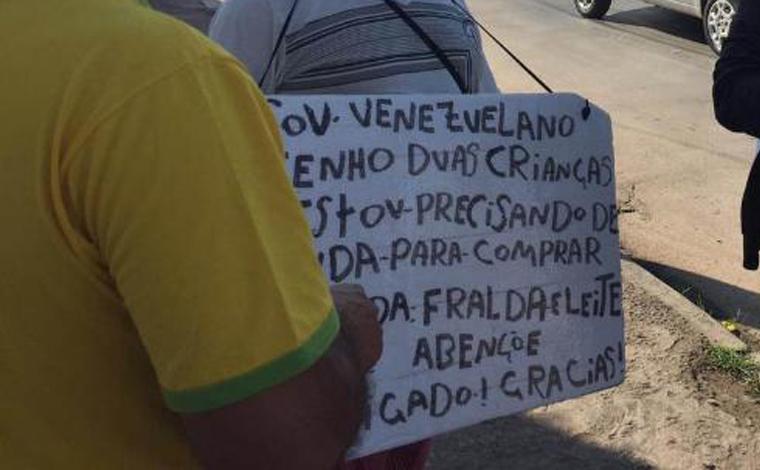 SOU. VENEZUELANO
TENHO DUAS CRIANÇAS
ESTOU-PRECISANDO DE
UDA-PARA-COMPRAR
DA. FRALDA E LEITE
ABENÇOE
IGADO! GRACIAS!